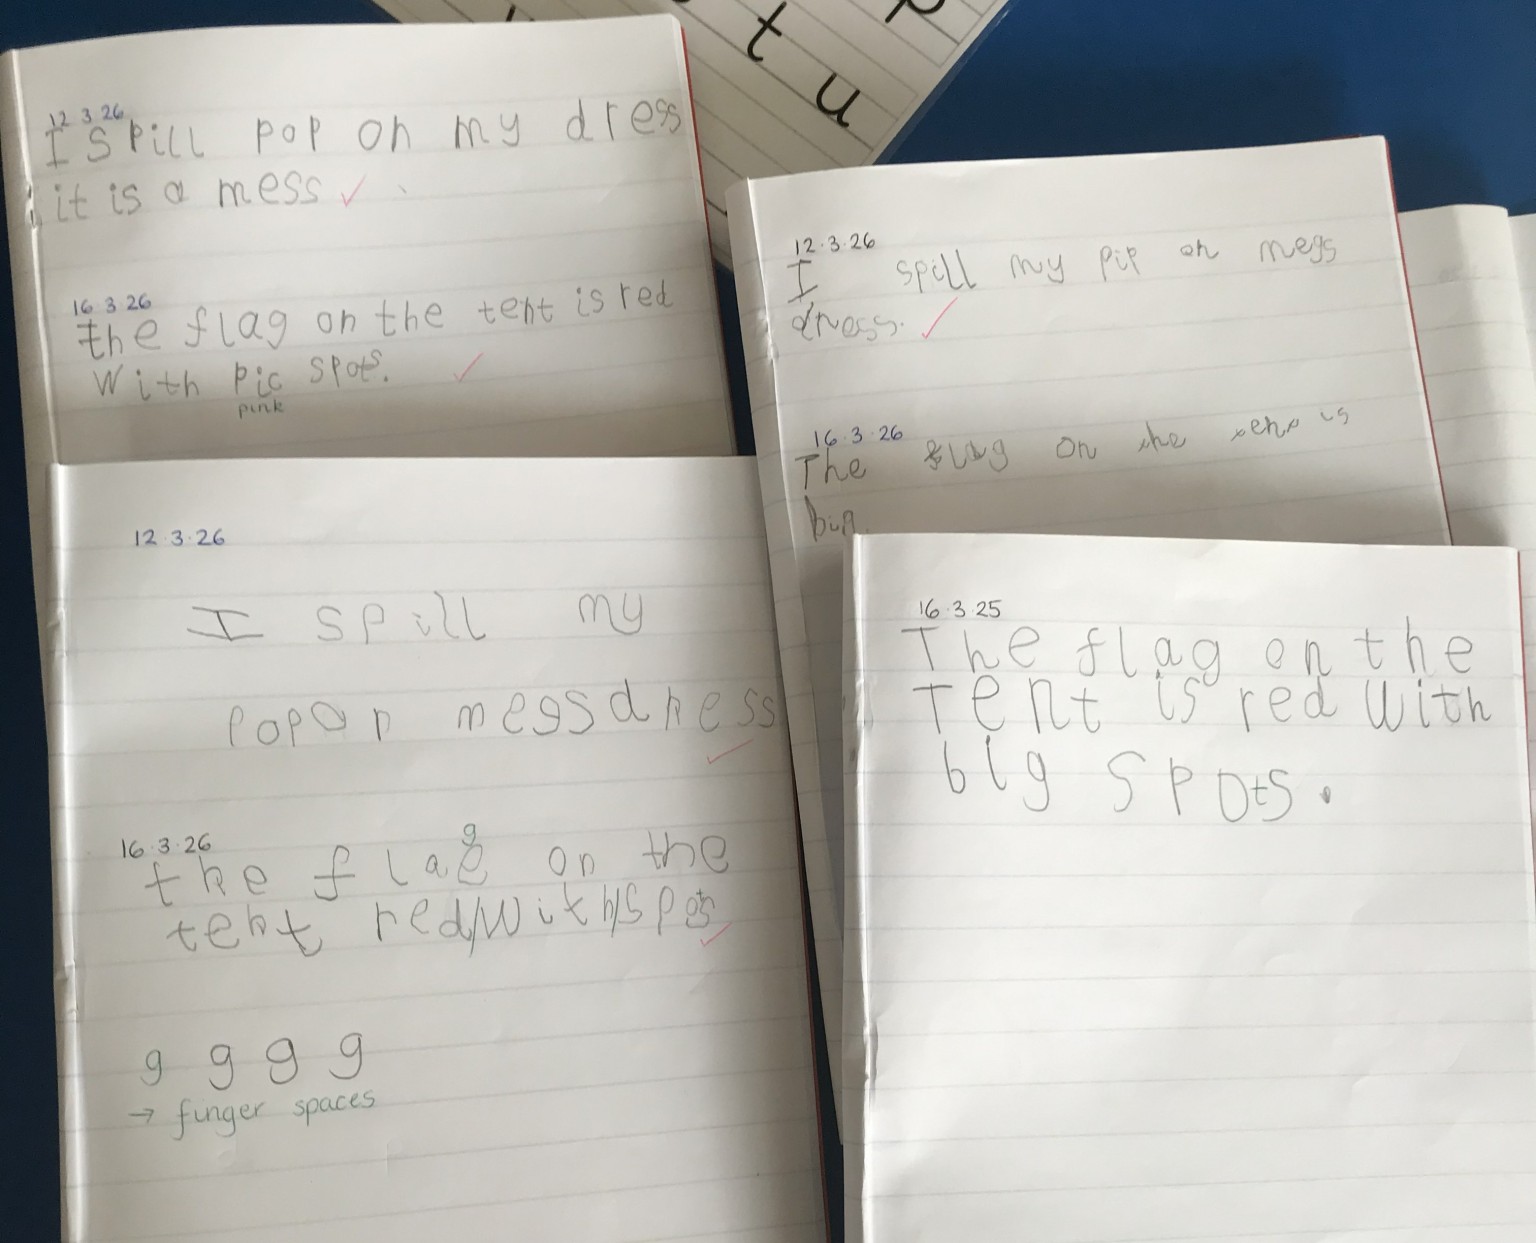 p
t
u
12 3 26
I spill pop on my dress
it is a mess
16 3 26
the flag on the tent is red
with pic spots.
pink
12·3·26
I spill my pip on megs
dress.
16·3·26
The flag on the tent is
big
12·3·26
I spill my
popon megsdress
16·3·26
g
the flag on the
tent red/with/spots
g g g g
→ finger spaces
16·3·25
The flag on the
Tent is red with
big spots.